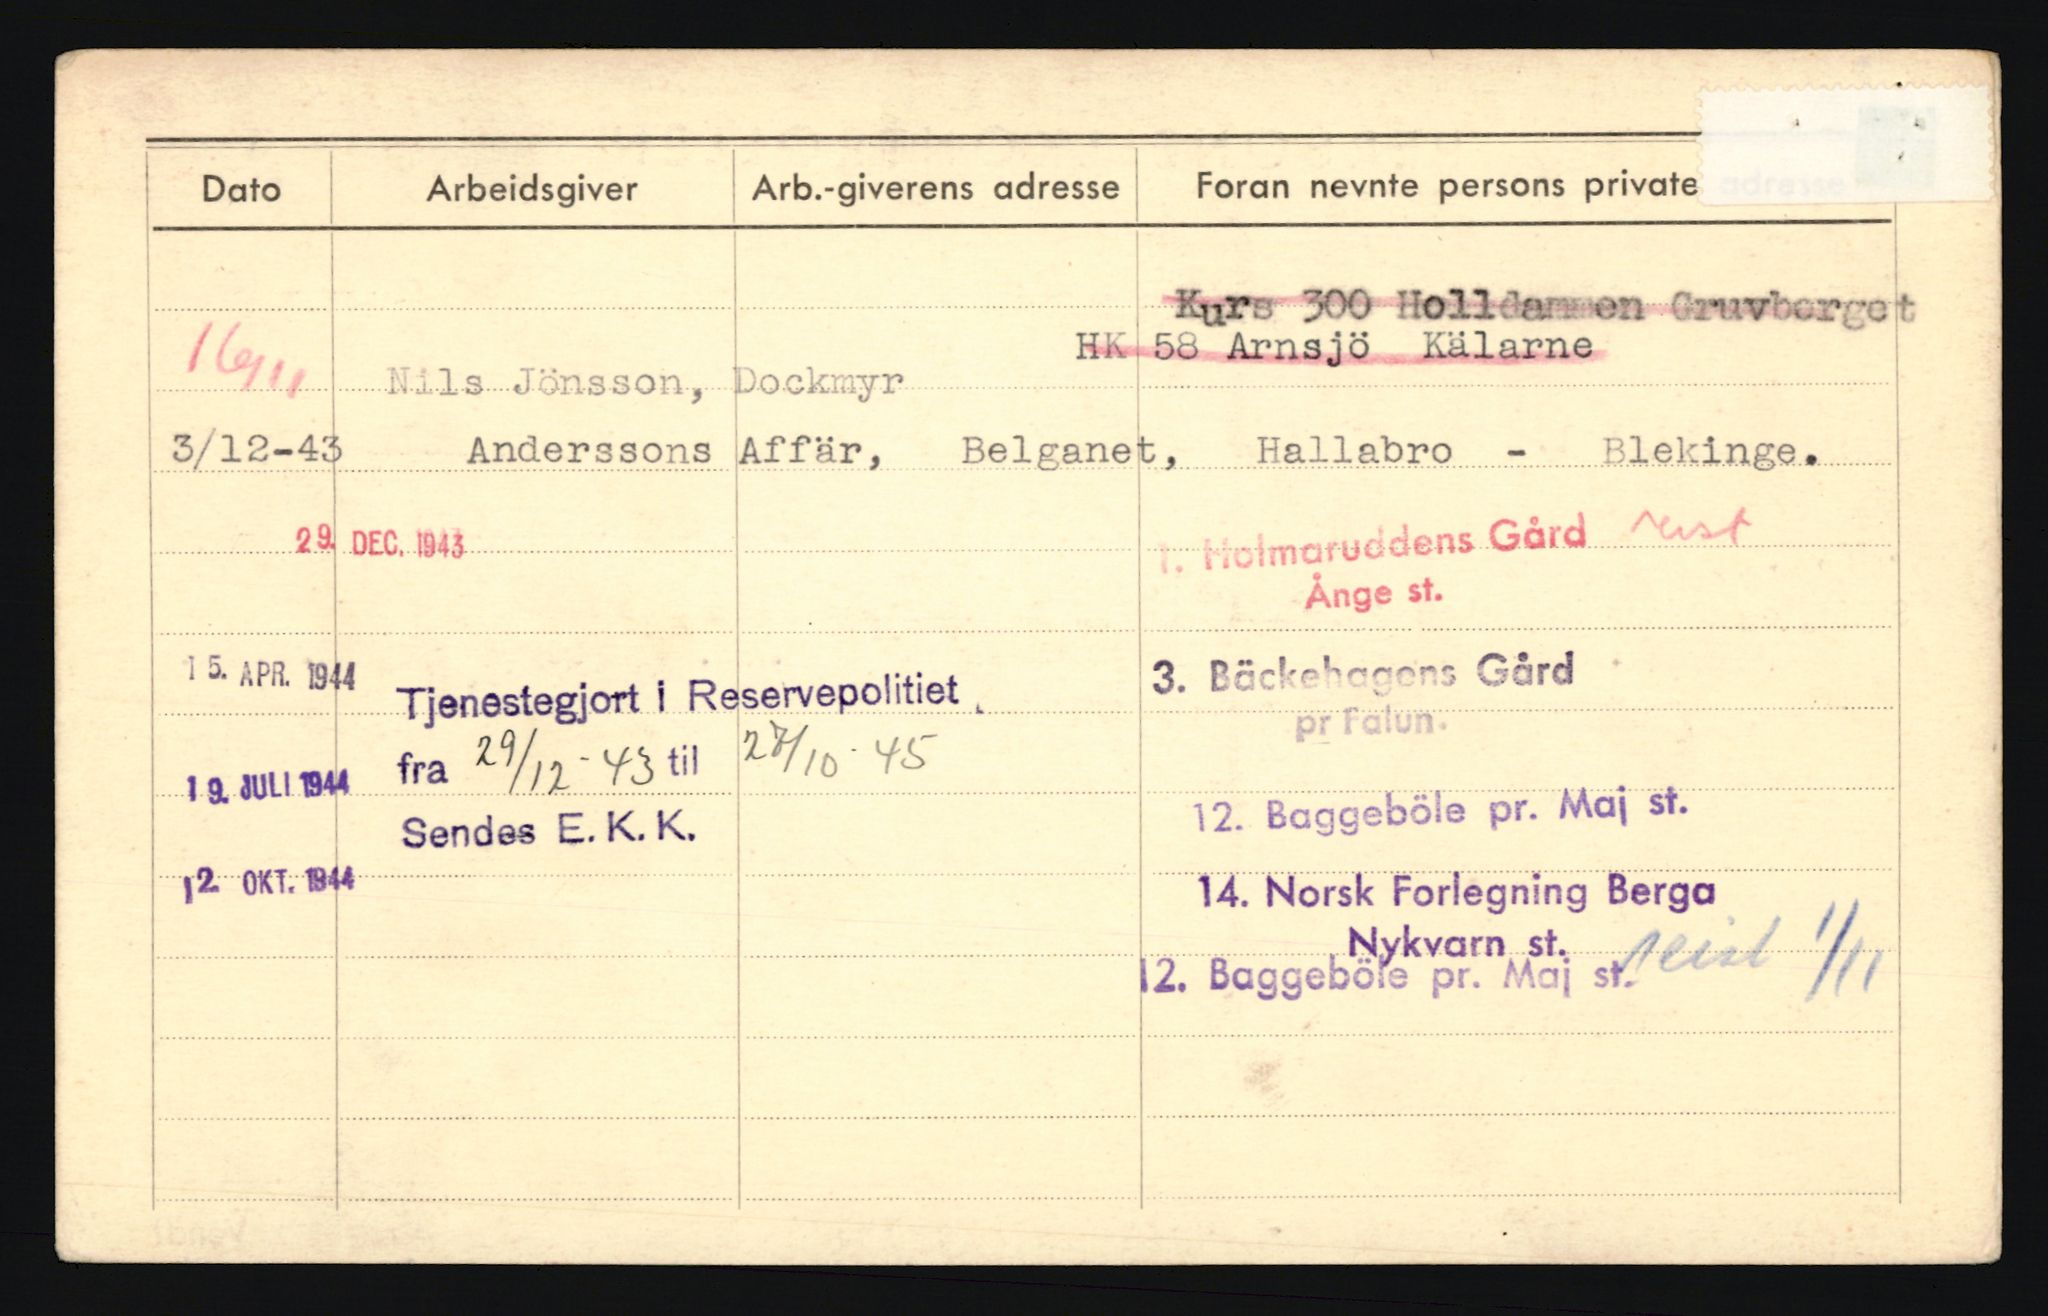 Dato Arbeidsgiver Arb.-giverens adresse Foran nevnte persons private adresse
Kurs 300 Holldammen Gruvberget
HK 58 Arnsjö Kälarne
16/11
Nils Jönsson, Dockmyr
3/12-43 Anderssons Affär, Belganet, Hallabro - Blekinge.
29. DEC. 1943 1. Holmaruddens Gård reist
Ånge st.
15. APR. 1944 3. Bäckehagens Gård
Tjenestegjort i Reservepolitiet
pr Falun.
fra 29/12-43 til 27/10-45
19. JULI 1944 12. Baggeböle pr. Maj st.
Sendes E. K. K.
12. OKT. 1944 14. Norsk Forlegning Berga
Nykvarn st.
12. Baggeböle pr. Maj st. reist 1/11